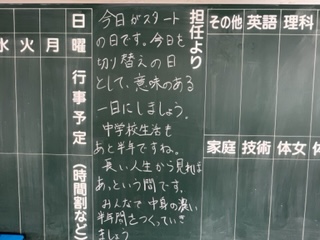 担任より
今日がスタート
の日です。今日を
切り替えの日
として、意味のある
一日にしましょう。
中学校生活も
あと半年ですね。
長い人生から見れば
あっという間です。
みんなで中身の濃い
半年間をつくっていき
ましょう
日
曜
行事予定
(時間割など)
月
火
水
その他
英語
理科
家庭
技術
体女
体